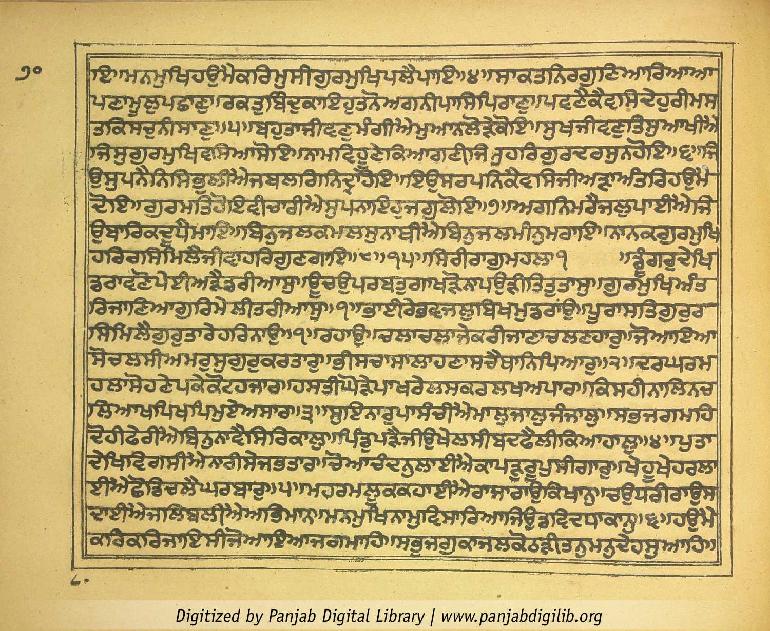 ੭੦
ਇ॥ਮਨਮੁਖਿਹਉਮੈਕਰਿਮੁਸੀਗੁਰਮੁਖਿਪਲੈਪਾਇ॥੪॥ਸਾਕਤਨਿਰਗੁਣਿਆਰਿਆਆ
ਪਣਾਮੂਲੁਪਛਾਣੁ॥ਰਕਤੁਬਿੰਦੁਕਾਇਹੁਤਨੋਅਗਨੀਪਾਸਿਪਿਰਾਣੁ॥ਪਵਣੈਕੈਵਸਿਦੇਹੁਰੀਮਸ
ਤਕਿਸਚੁਨੀਸਾਣੁ॥੫॥ਬਹੁਤਾਜੀਵਣੁਮੰਗੀਐਮੁਆਨਲੋੜੈਕੋਇ॥ਸੁਖਜੀਵਣੁਤਿਸੁਆਖੀਐ
ਜਿਸੁਗੁਰਮੁਖਿਵਸਿਆਸੋਇ॥ਨਾਮਵਿਹੂਣੇਕਿਆਗਣੀਜਿਸੁਹਰਿਗੁਰਦਰਸੁਨਹੋਇ॥੬॥ਜਿ
ਉਸੁਪਨੈਨਿਸਿਭੁਲੀਐਜਬਲਗਿਨਿਦ੍ਰਾਹੋਇ॥ਇਉਸਰਪਨਿਕੈਵਸਿਜੀਅੜਾਅੰਤਰਿਹਉਮੈ
ਦੋਇ॥ਗੁਰਮਤਿਹੋਇਵੀਚਾਰੀਐਸੁਪਨਾਇਹੁਜਗੁਲੋਇ॥੭॥ਅਗਨਿਮਰੈਜਲੁਪਾਈਐਜਿ
ਉਬਾਰਿਕਦੂਧੈਮਾਇ॥ਬਿਨੁਜਲਕਮਲਸੁਨਾਥੀਐਬਿਨੁਜਲਮੀਨੁਮਰਾਇ॥ਨਾਨਕਗੁਰਮੁਖਿ
ਹਰਿਰਸਿਮਿਲੈਜੀਵਾਹਰਿਗੁਣਗਾਇ॥੮॥੧੫॥ਸਿਰੀਰਾਗੁਮਹਲਾ੧ ॥ਡੂੰਗਰੁਦੇਖਿ
ਡਰਾਵਣੋਪੇਈਅੜੈਡਰੀਆਸੁ॥ਊਚਉਪਰਬਤੁਗਾਖੜੋਨਾਪਉੜੀਤਿਤੁਤਾਸੁ॥ਗੁਰਮੁਖਿਅੰਤ
ਰਿਜਾਣਿਆਗੁਰਿਮੇਲੀਤਰੀਆਸੁ॥੧॥ਭਾਈਰੇਭਵਜਲੁਬਿਖਮੁਡਰਾਂਉ॥ਪੂਰਾਸਤਿਗੁਰੁਰ
ਸਿਮਿਲੈਗੁਰੁਤਾਰੇਹਰਿਨਾਉ॥੧॥ਰਹਾਉ॥ਚਲਾਚਲਾਜੇਕਰੀਜਾਣਾਚਲਣਹਾਰੁ॥ਜੋਆਇਆ
ਸੋਚਲਸੀਅਮਰੁਸੁਗੁਰੁਕਰਤਾਰੁ॥ਭੀਸਚਾਸਾਲਾਹਣਾਸਚੈਥਾਨਿਪਿਆਰੁ॥੨॥ਦਰਘਰਮ
ਹਲਾਸੋਹਣੇਪਕੇਕੋਟਹਜਾਰ॥ਹਸਤੀਘੋੜੇਪਾਖਰੇਲਸਕਰਲਖਅਪਾਰ॥ਕਿਸਹੀਨਾਲਿਨਚ
ਲਿਆਖਪਿਖਪਿਮੁਏਅਸਾਰ॥੩॥ਸੁਇਨਾਰੁਪਾਸੰਚੀਐਮਾਲੁਜਾਲੁਜੰਜਾਲੁ॥ਸਭਜਗਮਹਿ
ਦੋਹੀਫੇਰੀਐਬਿਨੁਨਾਵੈਸਿਰਿਕਾਲੁ॥ਪਿੰਡੁਪੜੈਜੀਉਖੇਲਸੀਬਦਫੈਲੀਕਿਆਹਾਲੁ॥੪॥ਪੁਤਾ
ਦੇਖਿਵਿਗਸੀਐਨਾਰੀਸੇਜਭਤਾਰ॥ਚੋਆਚੰਦਨੁਲਾਈਐਕਾਪੜੁਰੂਪੁਸੀਗਾਰੁ॥ਖੇਹੂਖੇਹਰਲਾ
ਈਐਛੋਡਿਚਲੈਘਰਬਾਰੁ॥੫॥ਮਹਰਮਲੂਕਕਹਾਈਐਰਾਜਾਰਾਉਕਿਖਾਨੁ॥ਚਉਧਰੀਰਾਉਸ
ਦਾਈਐਜਲਿਬਲੀਐਅਭਿਮਾਨ॥ਮਨਮੁਖਿਨਾਮੁਵਿਸਾਰਿਆਜਿਉਡਵਿਦਧਾਕਾਨੁ॥੬॥ਹਉਮੈ
ਕਰਿਕਰਿਜਾਇਸੀਜੋਆਇਆਜਗਮਾਹਿ॥ਸਭੁਜਗੁਕਾਜਲਕੋਠੜੀਤਨੁਮਨੁਦੇਹਸੁਆਹਿ॥
Digitized by Panjab Digital Library | www.panjabdigilib.org